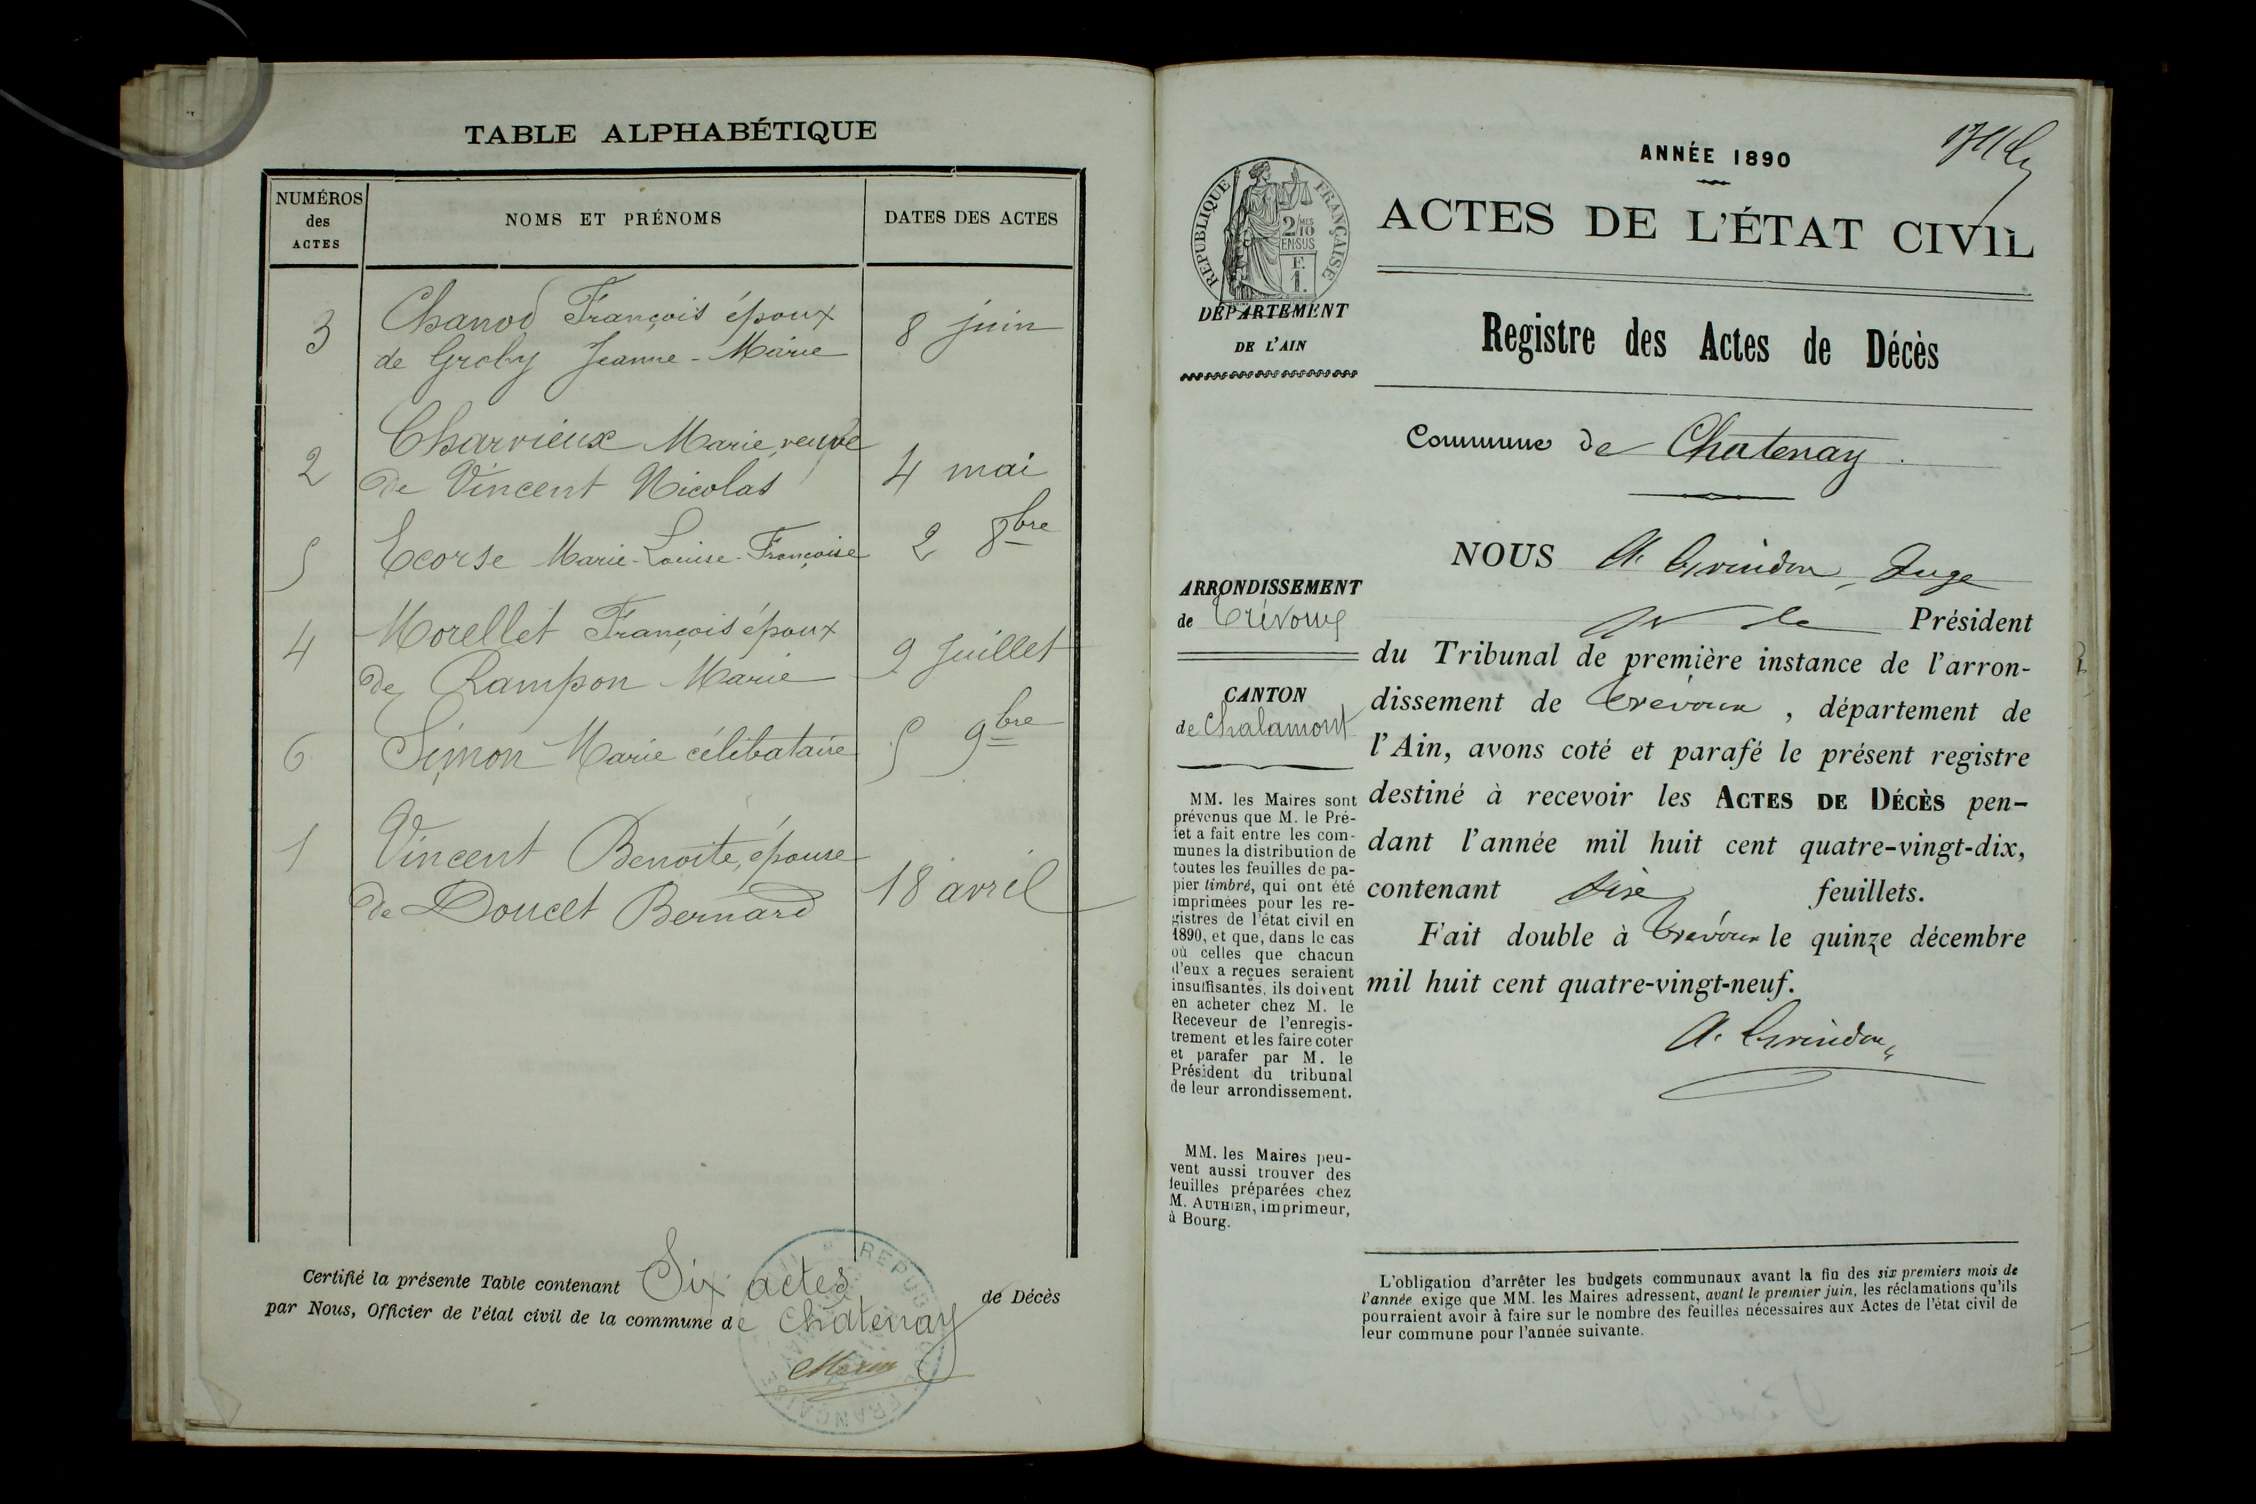 TABLE ALPHABÉTIQUE
NUMÉROS
des
ACTES
NOMS ET PRÉNOMS
DATES DES ACTES
3
Chanod François époux
de Groby Jeanne-Marie
8 juin
2
Charvieux Marie, veuve
de Vincent Nicolas
4 mai
5
Ecorse Marie-Louise-Françoise
2 8bre
4
Morellet François époux
de Rampon Marie
9 juillet
6
Simon Marie célibataire
5 9bre
1
Vincent Benoite, épouse
de Doucet Bernard
18 avril
Certifié la présente Table contenant Six actes de Décès
par Nous, Officier de l'état civil de la commune de Chatenay
ANNÉE 1890
RÉPUBLIQUE FRANÇAISE
2/10
EN SUS
F.
1.
ACTES DE L'ÉTAT CIVIL
DÉPARTEMENT
DE L'AIN
Registre des Actes de Décès
Commune de Chatenay
ARRONDISSEMENT
de Trévoux
CANTON
de Chalamont
MM. les Maires sont
prévenus que M. le Pré-
fet a fait entre les com-
munes la distribution de
toutes les feuilles de pa-
pier timbré, qui ont été
imprimées pour les re-
gistres de l'état civil en
1890, et que, dans le cas
où celles que chacun
d'eux a reçues seraient
insuffisantes, ils doivent
en acheter chez M. le
Receveur de l'enregis-
trement et les faire coter
et parafer par M. le
Président du tribunal
de leur arrondissement.
MM. les Maires peu-
vent aussi trouver des
feuilles préparées chez
M. AUTHIER, imprimeur,
à Bourg.
NOUS A. Grindon, Juge
Président
du Tribunal de première instance de l'arron-
dissement de Trévoux, département de
l'Ain, avons coté et parafé le présent registre
destiné à recevoir les ACTES DE DÉCÈS pen-
dant l'année mil huit cent quatre-vingt-dix,
contenant feuillets.
Fait double à Trévoux le quinze décembre
mil huit cent quatre-vingt-neuf.
A. Grindon
L'obligation d'arrêter les budgets communaux avant la fin des six premiers mois de
l'année exige que MM. les Maires adressent, avant le premier juin, les réclamations qu'ils
pourraient avoir à faire sur le nombre des feuilles nécessaires aux Actes de l'état civil de
leur commune pour l'année suivante.